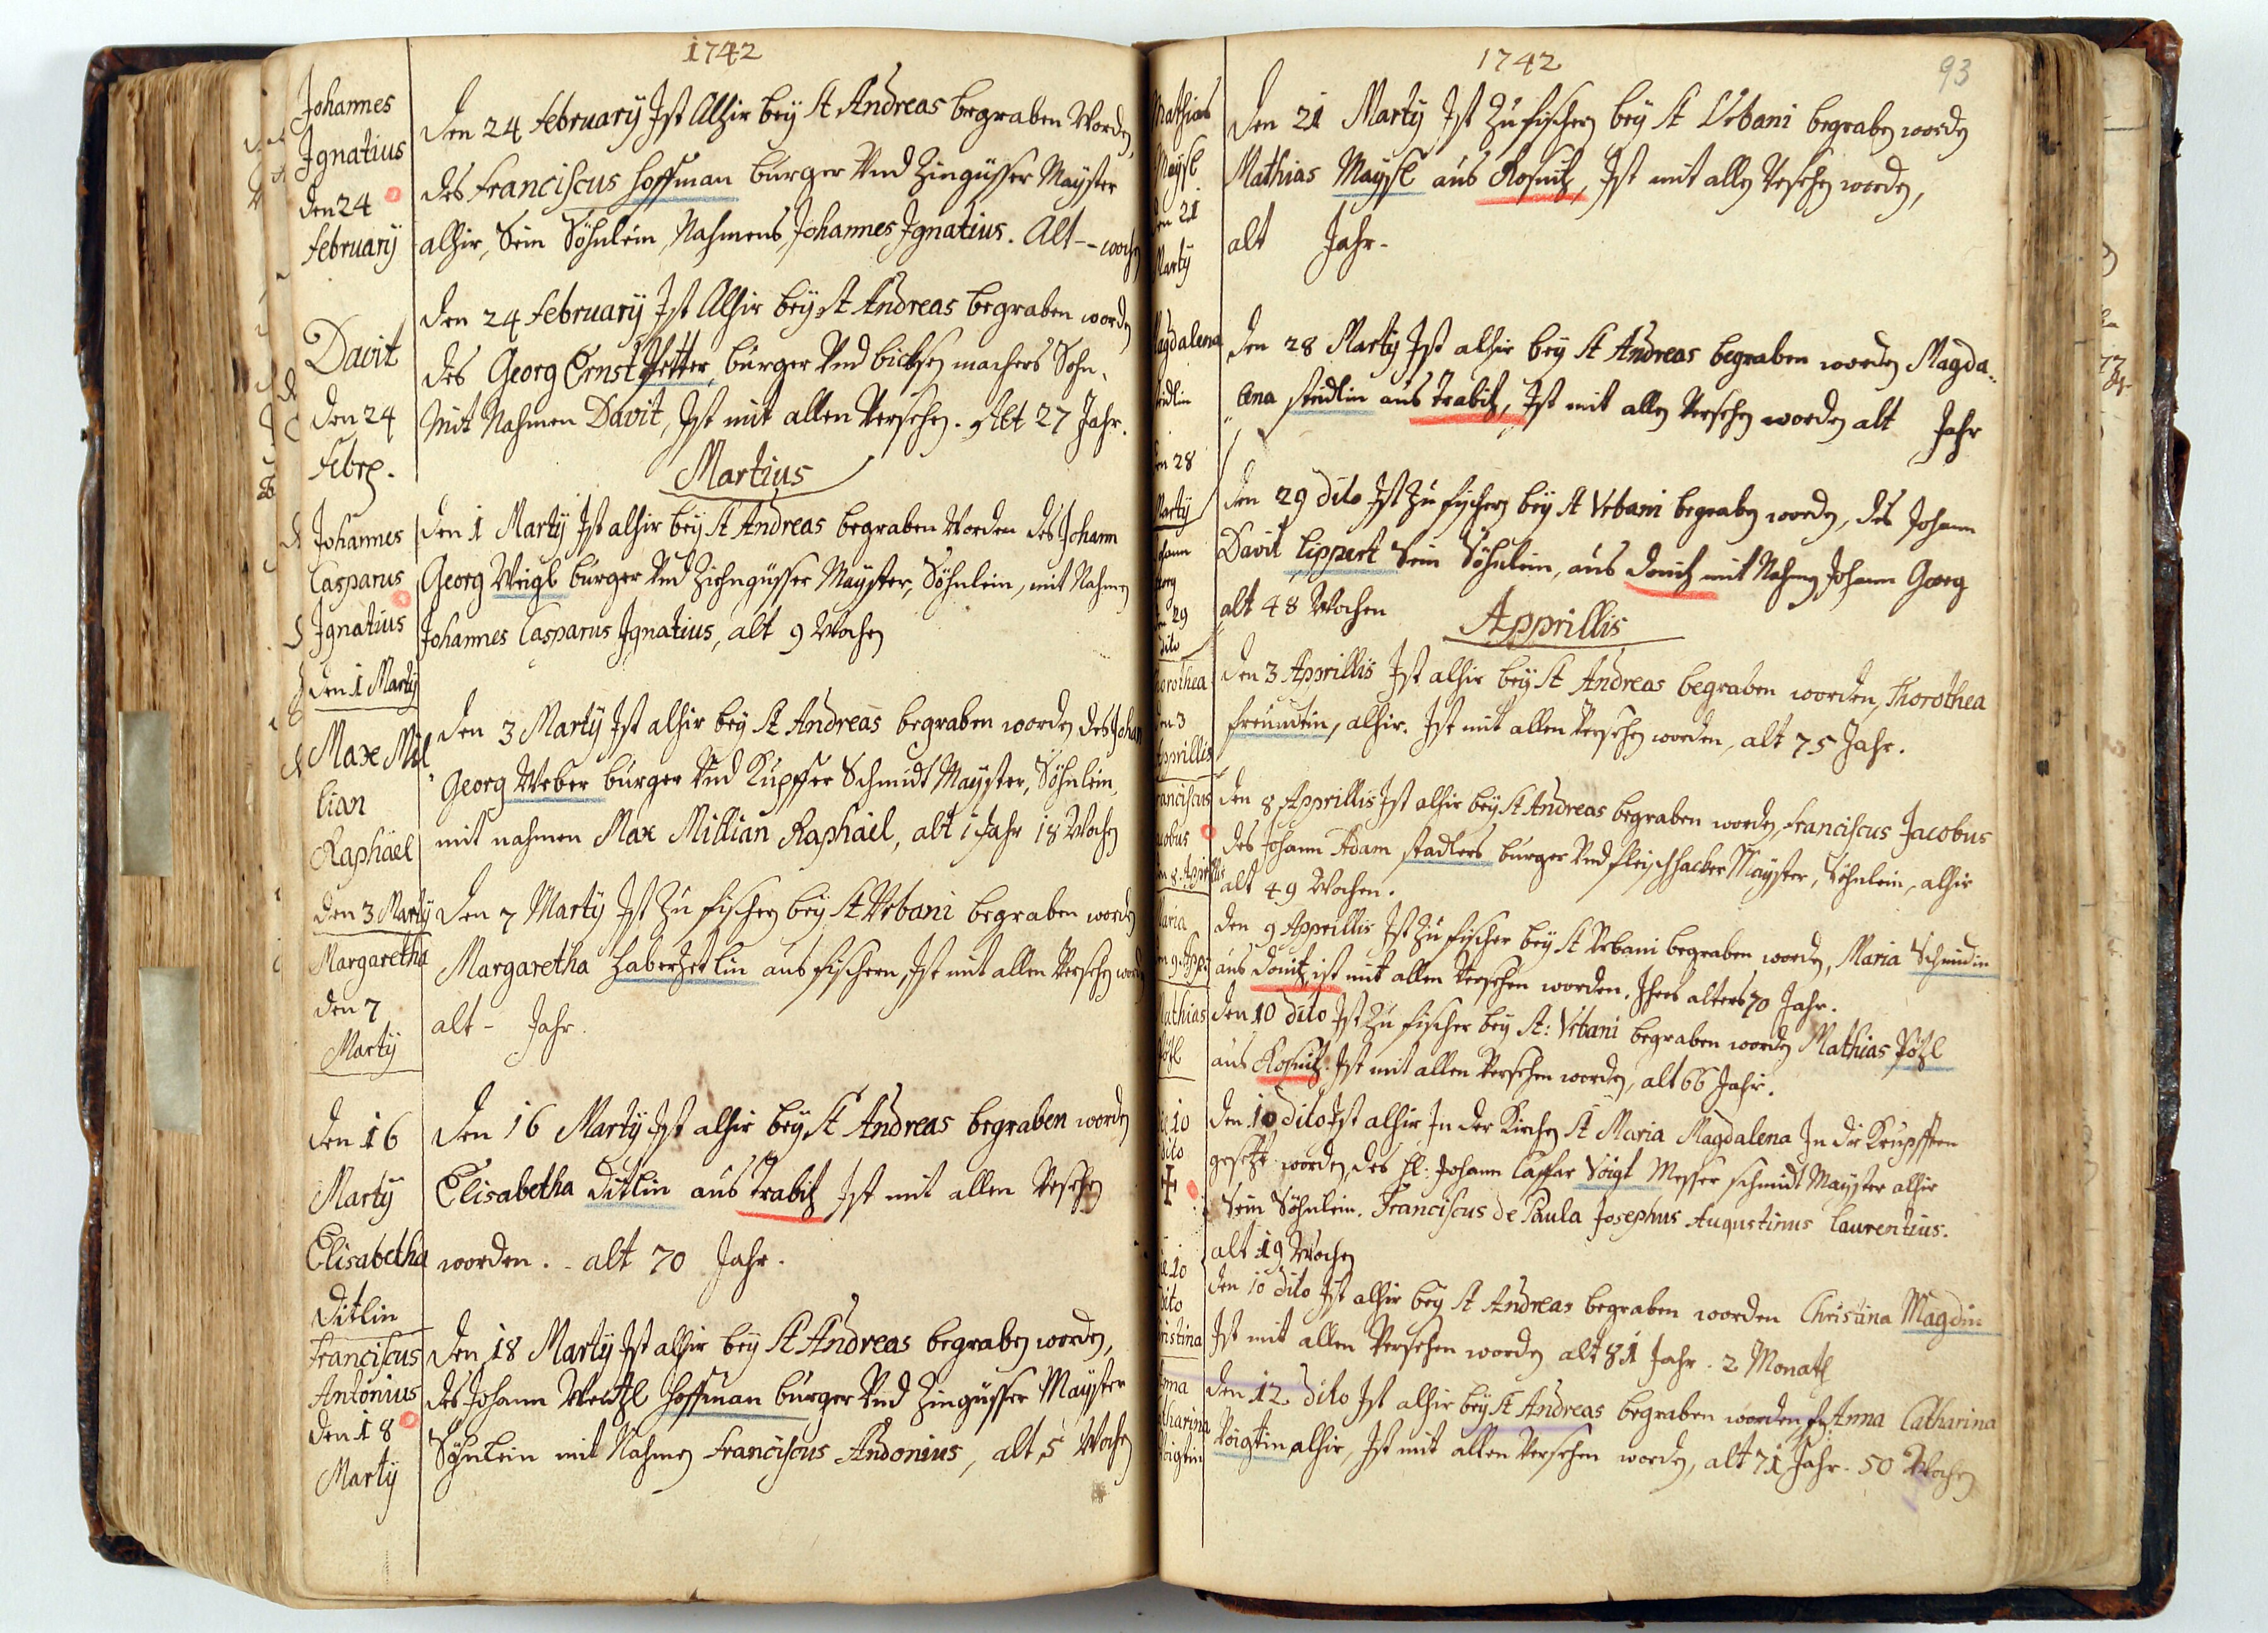 1742
Johannes
Ignatius
den 24
february
Den 24 february Ist Alhir bey St Andreas begraben Worden,
des Franciscus Hoffman burger Vnd Zingüsser Mayster
alhir, Sein Söhnlein, Nahmens, Johannes Ignatius. Alt -- woch
Davit
den 24
febre.
Den 24 february Ist Alhir bey St Andreas begraben worden
des Georg Ernst Petter, burger Vnd bicksen machers Sohn,
Mit Nahmen Davit, Ist mit allen Versehen. Alt 27 Jahr.
Martius
Johannes
Casparus
Ignatius
den 1 Marty
Den 1 Marty Ist alhir bey St Andreas begraben Worden des Johann
Georg Weigl burger Vnd Ziehngüsser Mayster, Söhnlein, mit Nahmen
Johannes Casparus Ignatius, alt 9 Wochen
Max Mil
lian
Raphael
den 3 Marty
Den 3 Marty Ist alhir bey St Andreas begraben worden des Johan
Georg Weber burger Vnd Kupffer Schmidt Mayster, Söhnlein,
mit nahmen Max Millian Raphael, alt 1 Jahr 18 Wochen
Margaretha
den 7
Marty
Den 7 Marty Ist Zu fischern bey St Vrbani begraben worden
Margaretha Haberzetlin aus fischern, Ist mit allen Versehen worden
alt - Jahr.
den 16
Marty
Elisabetha
Ditlin
Den 16 Marty Ist alhir bey St Andreas begraben worden
Elisabetha Ditlin aus Trabitz Ist mit allen Versehen
worden. - alt 70 Jahr.
Franciscus
Antonius
den 18
Marty
Den 18 Marty Ist alhir bey St Andreas begraben worden,
des Johann Wentzl Hoffman burger Vnd Zingüsser Mayster
Söhnlein mit Nahmen Franciscus Andonius, alt 5 Wochen
1742
93
Mathias
Maysl
den 21
Marty
Den 21 Marty Ist Zu fischern bey St Vrbani begraben worden
Mathias Maysl aus Rosnitz, Ist mit allen Versehen worden,
alt Jahr.
Magdalena
en 28
Marty
Den 28 Marty Ist alhir bey St Andreas begraben worden Magda-
lena steidlin aus Trabitz, Ist mit allen Versehen worden alt Jahr
29
dito
Den 29 dito Ist Zu fischern bey St Vrbani begraben worden, des Johann
Davit Lippert Sein Söhnlein, aus Donitz mit Nahmen Johann Georg
alt 48 Wochen
Apprillis
orothea
den 3
Apprillis
Den 3 Apprillis Ist alhir bey St Andreas begraben worden, Thorothea
freundin, alhir. Ist mit allen Versehen worden, alt 75 Jahr.
ranciscus
acobus
8 Apprillis
Den 8 Apprillis Ist alhir bey St Andreas begraben worden, Franciscus Jacobus
des Johann Adam stadlers burger Vnd fleischhacker Mayster, Söhnlein, alhir
alt 49 Wochen.
Maria
9 Appr
Den 9 Apprillis Ist Zu fischer bey St Vrbani begraben worden, Maria Schmidin
aus Donitz ist mit allen Versehen worden. Ihres alters 70 Jahr.
Mathias
Pötzl
Den 10 dito Ist Zu fischer bey St: Vrbani begraben worden Mathias Pötzl
aus Rosnitz. Ist mit allen Versehen worden, alt 66 Jahr.
10
dito
Den 10 dito Ist alhir In der Kirchen St Maria Magdalena In die Krupfften
gesetzt worden, des H: Johann Casspar Voigt Messer schmidt Mayster alhir
Sein Söhnlein. Franciscus de Paula Josephus Augustinus Laurentius.
alt 19 Wochen
10
dito
ristina
Den 10 dito Ist alhir bey St Andreas begraben worden Christina Magdin
Ist mit allen Versehen worden alt 81 Jahr. 2 Monath
Anna
atharina
Voigtin
Den 12 dito Ist alhir bey St Andreas begraben worden Anna Catharina
Voigtin alhir, Ist mit allen Versehen worden, alt 71 Jahr. 50 Wochen